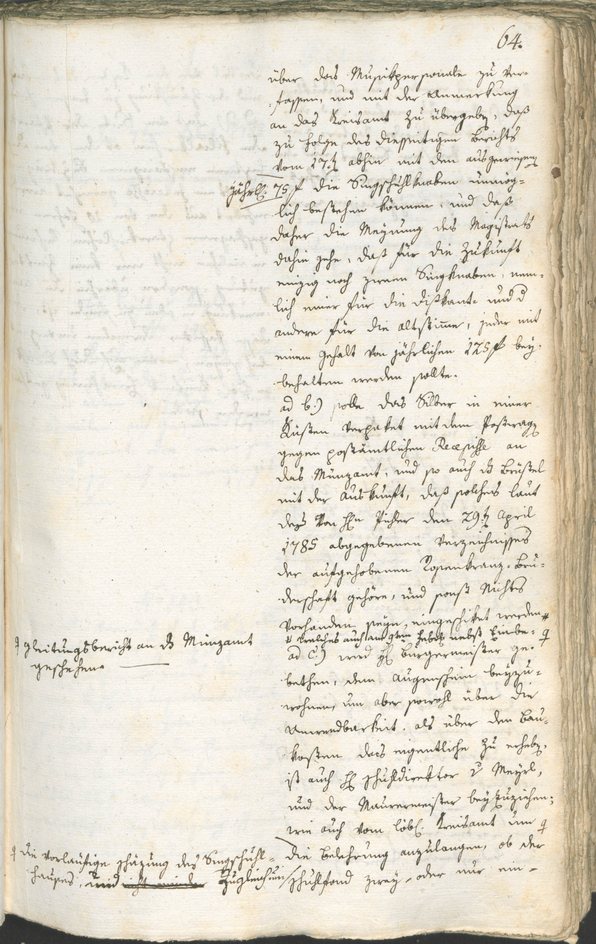 64.
über das Musikpersonale zu ver-
fassen, und mit der Anmerkung
an das Kreisamt zu übergeben, daß
zu Folge des diesseitigen Berichts
vom 17.t abhin mit den ausgewiesenen
jährl. 75 f die Singschulknaben unmög-
lich bestehen können, und daß
daher die Meynung des Magistrats
dahin gehe, daß für die Zukunft
einzig noch zween Singknaben, nem-
lich einer für die Diskant- und d
andere für die Altstimme, jeder mit
einem Gehalt von jährlichen 125 f bey-
behalten werden sollte.
ad b.) solle das Silber in einer
Kisten verpaket mit dem Postwagen
gegen postämtlichen Recepisse an
das Münzamt, und so auch das
mit der Auskunft, daß solches laut
des von H. Pichler den 29.t April
1785 abgegebenen Verzeichnisses
der aufgehobenen Rosenkranz-Bru-
derschaft gehöre, und sonst Nichts
vorhanden seye, eingeschiket werden
ad c.) wird H. Bürgermeister ge-
bethen, dem Augenschein beyzu-
wohnen, um aber sowohl über die
Anwendbarkeit, als über den Bau-
kosten das eigentliche zu erheben,
ist auch H. Schuldirektor v Mayrl,
und der Maurermeister beyzuziehen,
wie auch vom löbl. Kreisamt um
die Belehrung anzulangen, ob der
Schulfond zwey- oder nur ein-
gleitungsbericht an das Münzamt
geschehen
die vorläufige Schäzung des Singschul-
hauses, und zugleich um